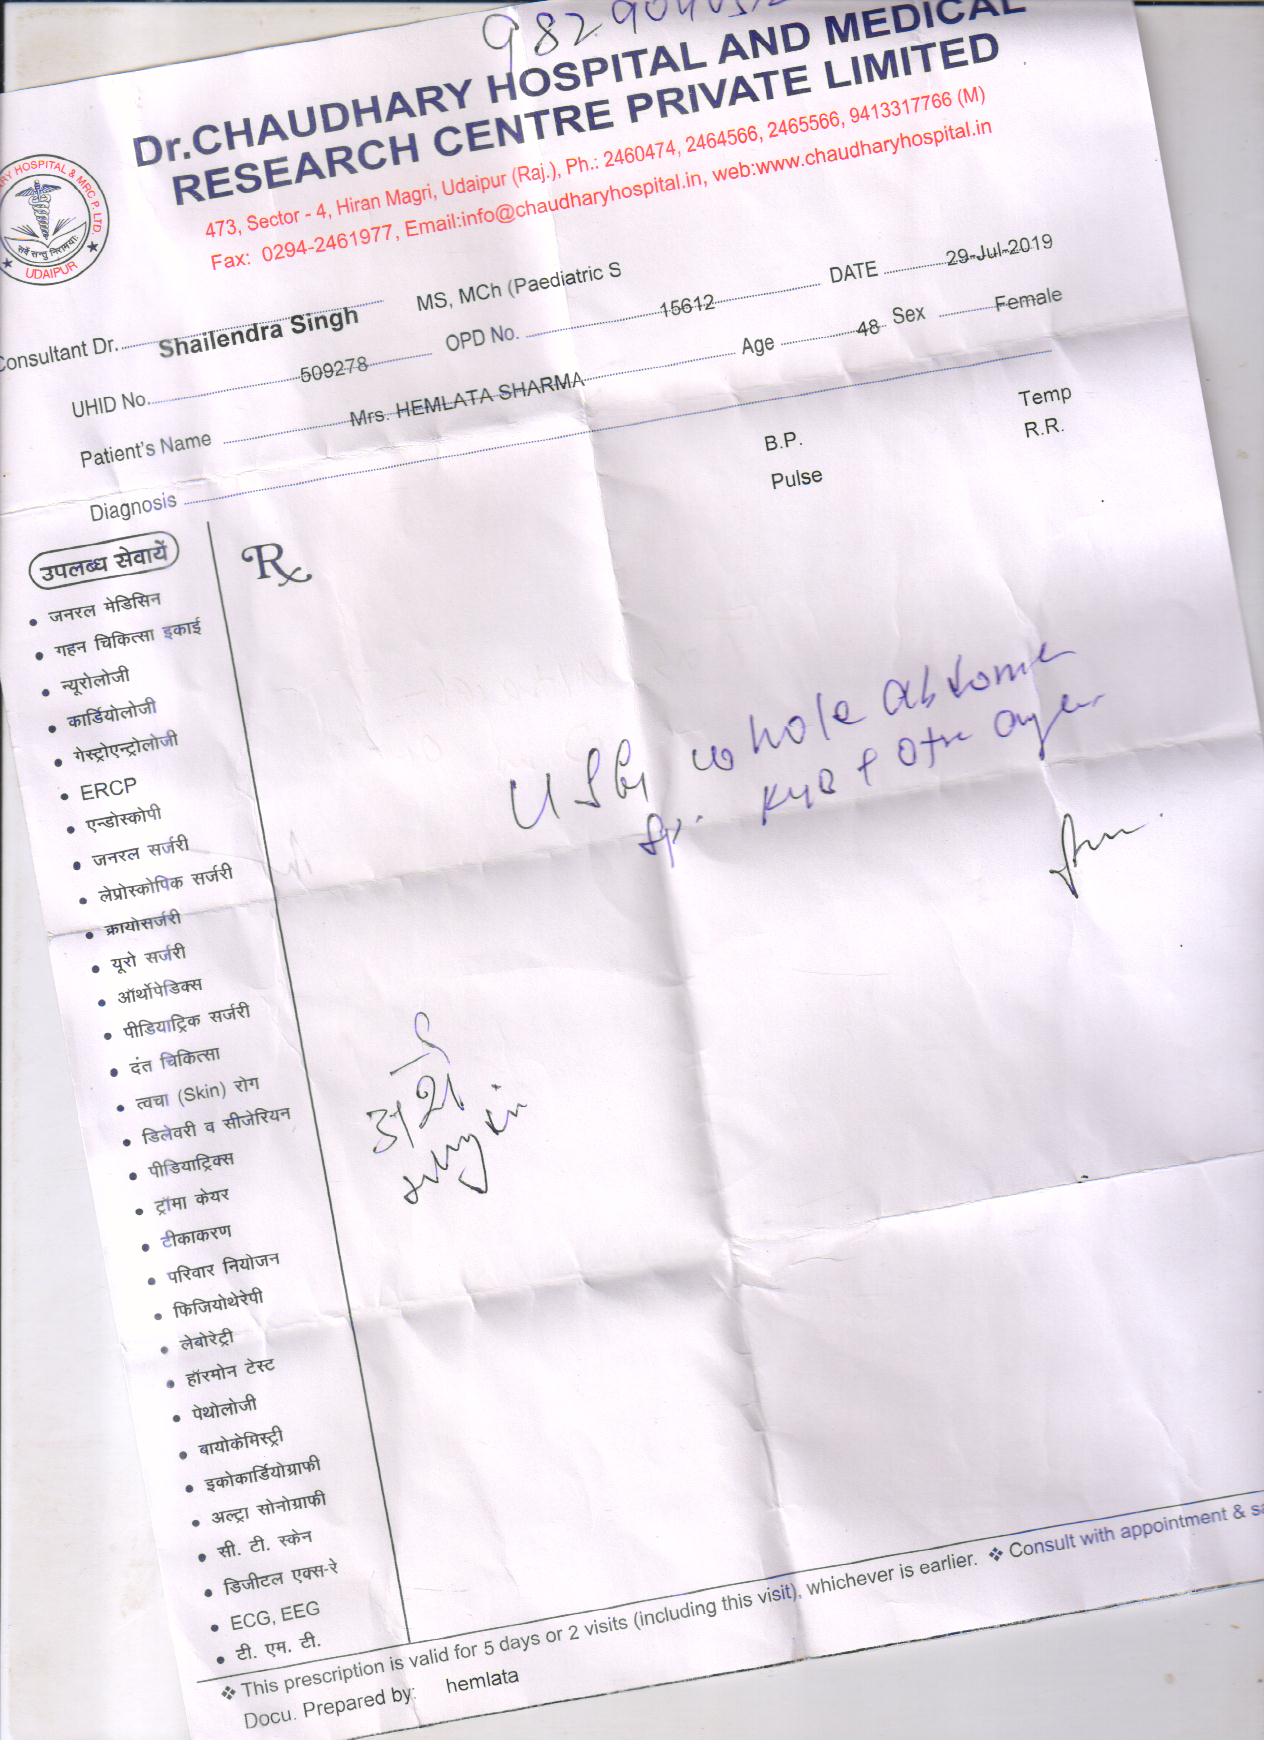 Dr.CHAUDHARY HOSPITAL AND MEDICAL
RESEARCH CENTRE PRIVATE LIMITED
473, Sector - 4, Hiran Magri, Udaipur (Raj.), Ph.: 2460474, 2464566, 2465566, 9413317766 (M)
Fax: 0294-2461977, Email:info@chaudharyhospital.in, web:www.chaudharyhospital.in
HOSPITAL & MRC P. LTD.
सर्वे सन्तु निरामयाः
UDAIPUR
Consultant Dr. Shailendra Singh MS, MCh (Paediatric S DATE 29-Jul-2019
UHID No. 509278 OPD No. 15612
Patient's Name Mrs. HEMLATA SHARMA Age 48 Sex Female
Diagnosis
B.P. Temp
Pulse R.R.
उपलब्ध सेवायें
Rx
• जनरल मेडिसिन
• गहन चिकित्सा इकाई
• न्यूरोलोजी
• कार्डियोलोजी
• गेस्ट्रोएन्ट्रोलोजी
• ERCP
• एन्डोस्कोपी
• जनरल सर्जरी
• लेप्रोस्कोपिक सर्जरी
• क्रायोसर्जरी
• यूरो सर्जरी
• ऑर्थोपेडिक्स
• पीडियाट्रिक सर्जरी
• दंत चिकित्सा
• त्वचा (Skin) रोग
• डिलेवरी व सीजेरियन
• पीडियाट्रिक्स
• ट्रॉमा केयर
• टीकाकरण
• परिवार नियोजन
• फिजियोथेरेपी
• लेबोरेट्री
• हॉरमोन टेस्ट
• पेथोलोजी
• बायोकेमिस्ट्री
• इकोकार्डियोग्राफी
• अल्ट्रा सोनोग्राफी
• सी. टी. स्केन
• डिजीटल एक्स-रे
• ECG, EEG
• टी. एम. टी.
USG whole abdomen
KUB
❖ This prescription is valid for 5 days or 2 visits (including this visit), whichever is earlier. ❖ Consult with appointment &
Docu. Prepared by: hemlata